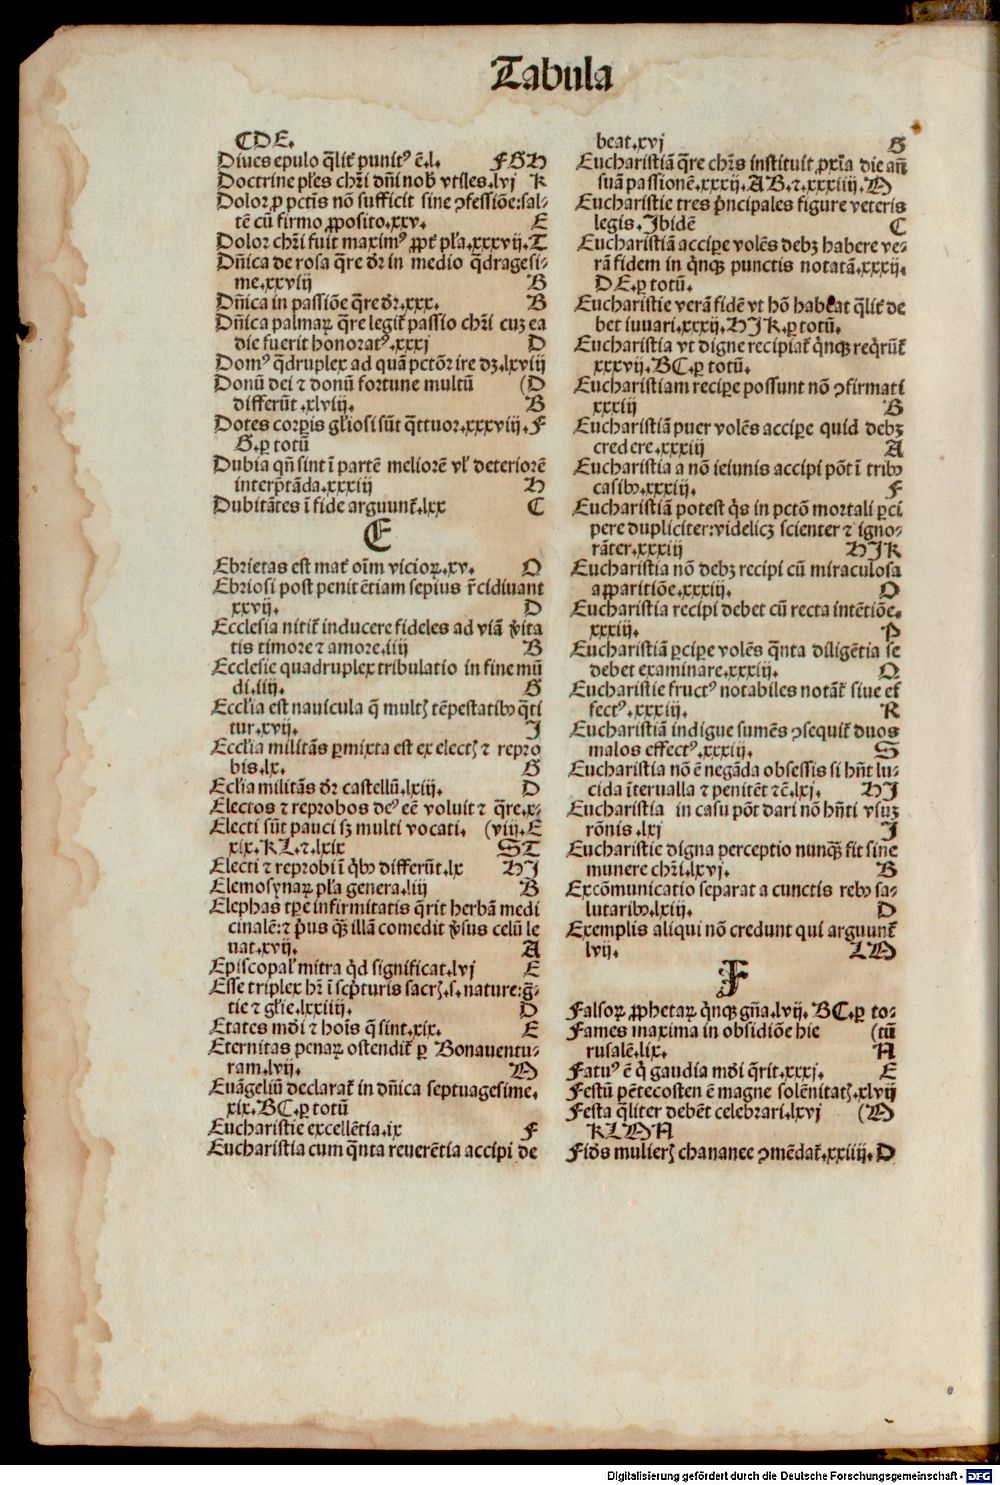 Tabula
CDE.
Diues epulo q̄lit̛ punit⁹ ē.l. FGH
Doctrine pl̛es chr̄i dn̄i nob̛ vtiles.lvj K
Dolor ꝓ pctis nō sufficit sine ꝯfessiōe:sal⸗
tē cū firmo ꝓposito.xxv. E
Dolor chr̄i fuit maxim⁹ ꝓpt̛ pl̛a.xxxvij.T
Dn̄ica de rosa q̄re dr̄ in medio q̄dragesi⸗
me.xxviij B
Dn̄ica in passiōe q̄re dr̄.xxx. B
Dn̄ica palmaꝝ q̄re legit̛ passio chr̄i cuꝫ ea
die fuerit honorat⁹.xxxj D
Dom⁹ q̄druplex ad quā pctōr ire dꝫ.lxviij
Donū dei ⁊ donū fortune multū (D
differūt.xlviij. B
Dotes corꝑis gl̛iosi sūt q̄ttuor.xxxviij.F
G.ꝑ totū
Dubia qn̄ sint ī partē meliorē vl̛ deteriorē
interp̄tāda.xxxiij H
Dubitātes ī fide arguunt̛.lxx C
E
Ebrietas est mat̛ oīm vicioꝝ.xv. O
Ebriosi post penitētiam sepius r̄cidiuant
xxvij. D
Ecclesia nitit̛ inducere fideles ad viā v̄ita
tis timore ⁊ amore.iiij B
Ecclesie quadruplex tribulatio in fine mū
di.iij. G
Eccl̛ia est nauicula q̄ multꝭ tēpestatibꝰ q̄ti
tur.xvij. J
Eccl̛ia militās ꝑmixta est ex electꝭ ⁊ repro
bis.lx. G
Ecl̛ia militās dr̄ castellū.lxiij. D
Electos ⁊ reprobos de⁹ eē voluit ⁊ q̄re.x⸗
Electi sūt pauci sꝫ multi vocati. (viij.E
xix.KL.⁊.lxix ST
Electi ⁊ reprobi ī q̇bꝰ differūt.lx HJ
Elemosynaꝝ pl̛a genera.liij B
Elephas tꝑe infirmitatis q̄rit herbā medi
cinalē:⁊ p̄us qꝫ illā comedit v̄sus celū le
uat.xvij. A
Episcopal̛ mitra q̇d significat.lvj E
Esse triplex hr̄ ī scp̄turis sacrꝭ.s.nature:gr̄⸗
tie ⁊ gl̛ie.lxxiiij. D
Etates mōi ⁊ hoīs q̄ sint.xix. E
Eternitas penaꝝ ostendit̛ ꝑ Bonauentu⸗
ram.lvij. M
Euāgeliū declarat̛ in dn̄ica septuagesime.
xix.BC.ꝑ totū
Eucharistie excellētia.ix F
Eucharistia cum q̄nta reuerētia accipi de
beat.xvj G
Eucharistiā q̄re chr̄s instituit ꝓxīa die an̄
suā passionē.xxxij.AB.⁊.xxxiiij.M
Eucharistie tres p̄ncipales figure veteris
legis.Jbidē C
Eucharistiā acciꝑe volēs debꝫ habere ve⸗
rā fidem in q̇nqꝫ punctis notatā.xxxij.
DE.ꝑ totū.
Eucharistie verā fidē vt hō habeat q̄lit̛ de
bet iuuari.xxxij.HJK.ꝑ totū.
Eucharistia vt digne recipiat̛ q̇nqꝫ req̇rūt̛
xxxvij.BC.ꝑ totū.
Eucharistiam reciꝑe possunt nō ꝯfirmati
xxxiij B
Eucharistiā puer volēs acciꝑe quid debꝫ
credere.xxxiij A
Eucharistia a nō ieiunis accipi pōt ī tribꝰ
casibꝰ.xxxiij. F
Eucharistiā potest q̇s in pctō mortali ꝑci
pere dupliciter:videlicꝫ scienter ⁊ igno⸗
rāter.xxxiij HJK
Eucharistia nō debꝫ recipi cū miraculosa
apparitiōe.xxxiij. O
Eucharistia recipi debet cū recta intētiōe.
xxxiij. P
Eucharistiā ꝑciꝑe volēs q̄nta diligētia se
debet examinare.xxxiij. Q
Eucharistie fruct⁹ notabiles notāt̛ siue ef
fect⁹.xxxiij. R
Eucharistiā indigne sumēs ꝯsequit̛ duos
malos effect⁹.xxxiij. S
Eucharistia nō ē negāda obsessis si hn̄t lu⸗
cida īterualla ⁊ penitēt ⁊ē.lxj. HJ
Eucharistia in casu pōt dari nō hn̄ti vsuꝫ
rōnis.lxj J
Eucharistie digna perceptio nunqꝫ fit sine
munere chr̄i.lxvj. B
Excōmunicatio separat a cunctis rebꝰ sa⸗
lutaribꝰ.lxiij. D
Exemplis aliqui nō credunt qui arguunt̛
lvij. LM
F
Falsoꝝ ꝓphetaꝝ q̇nqꝫ gn̄a.lvij.BC.ꝑ to⸗
Fames maxima in obsidiōe hie (tū
rusalē.lix. N
Fatu⁹ ē q̇ gaudia mōi q̄rit.xxxj. E
Festū pētecosten ē magne solēnitatꝭ.xlvij
Festa q̄liter debēt celebrari.lxvj (M
KLMN
Fidēs mulierꝭ chananee ꝯmēdat̛.xxiiij.D
Digitalisierung gefördert durch die Deutsche Forschungsgemeinschaft - DFG